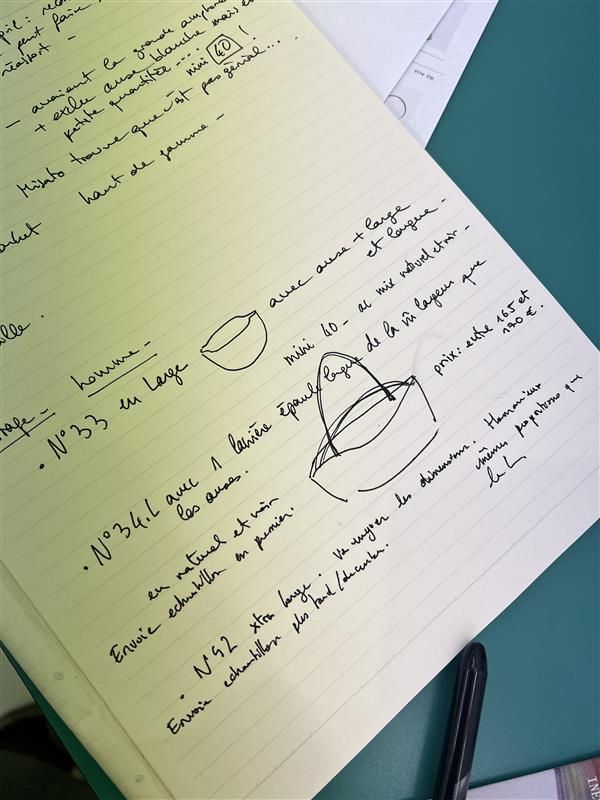 peut faire
réassort -
- avaient la grande
+ exclu anse blanche mais en
petite quantitée .... mini 40 !
Misato trouve que c'est pas génial...
haut de gamme -
homme -
• N°33 en large avec anse + large
et longue -
mini 40 - ac mix naturel et noir -
• N°34.L avec 1 lanière épaule longue de la m̂ largeur que
les anses.
prix: entre 165 et
170 €.
en naturel et noir
Envoie echantillon en premier.
• N°42 xtra large : Va envoyer les dimensions.
mêmes proportions que
le L
Envoie echantillon plus tard/décembre.